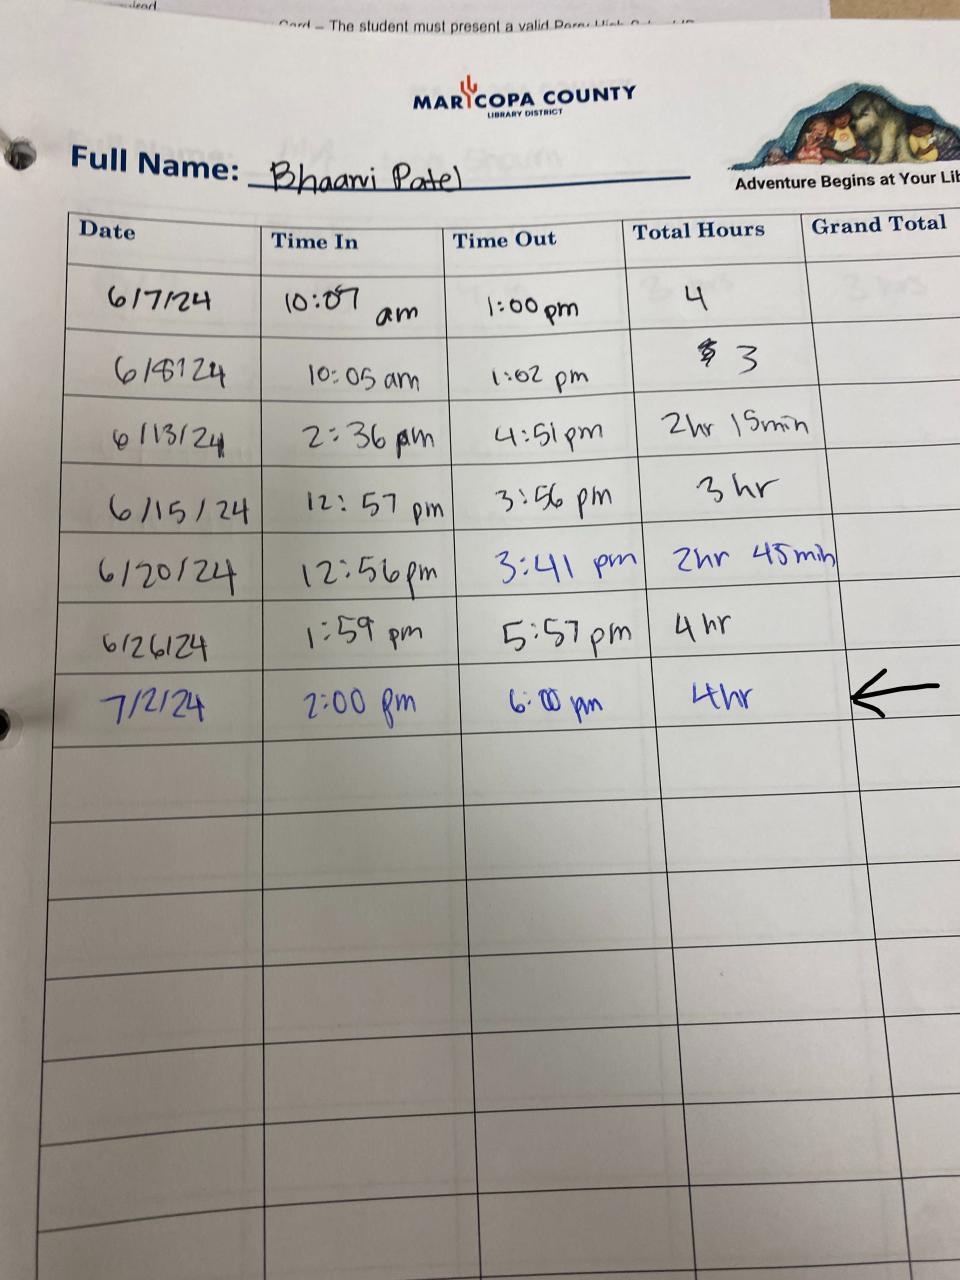 Card – The student must present a valid Perry High School ID
MARICOPA COUNTY
LIBRARY DISTRICT
Full Name: Bhaarvi Patel
Adventure Begins at Your Lib
Date Time In Time Out Total Hours Grand Total
6/7/24 10:07 am 1:00 pm 4
6/8/24 10:05 am 1:02 pm 3
6/13/24 2:36 pm 4:51 pm 2hr 15min
6/15/24 12:57 pm 3:56 pm 3 hr
6/20/24 12:56 pm 3:41 pm 2hr 45min
6/26/24 1:59 pm 5:57 pm 4 hr
7/2/24 2:00 pm 6:00 pm 4hr